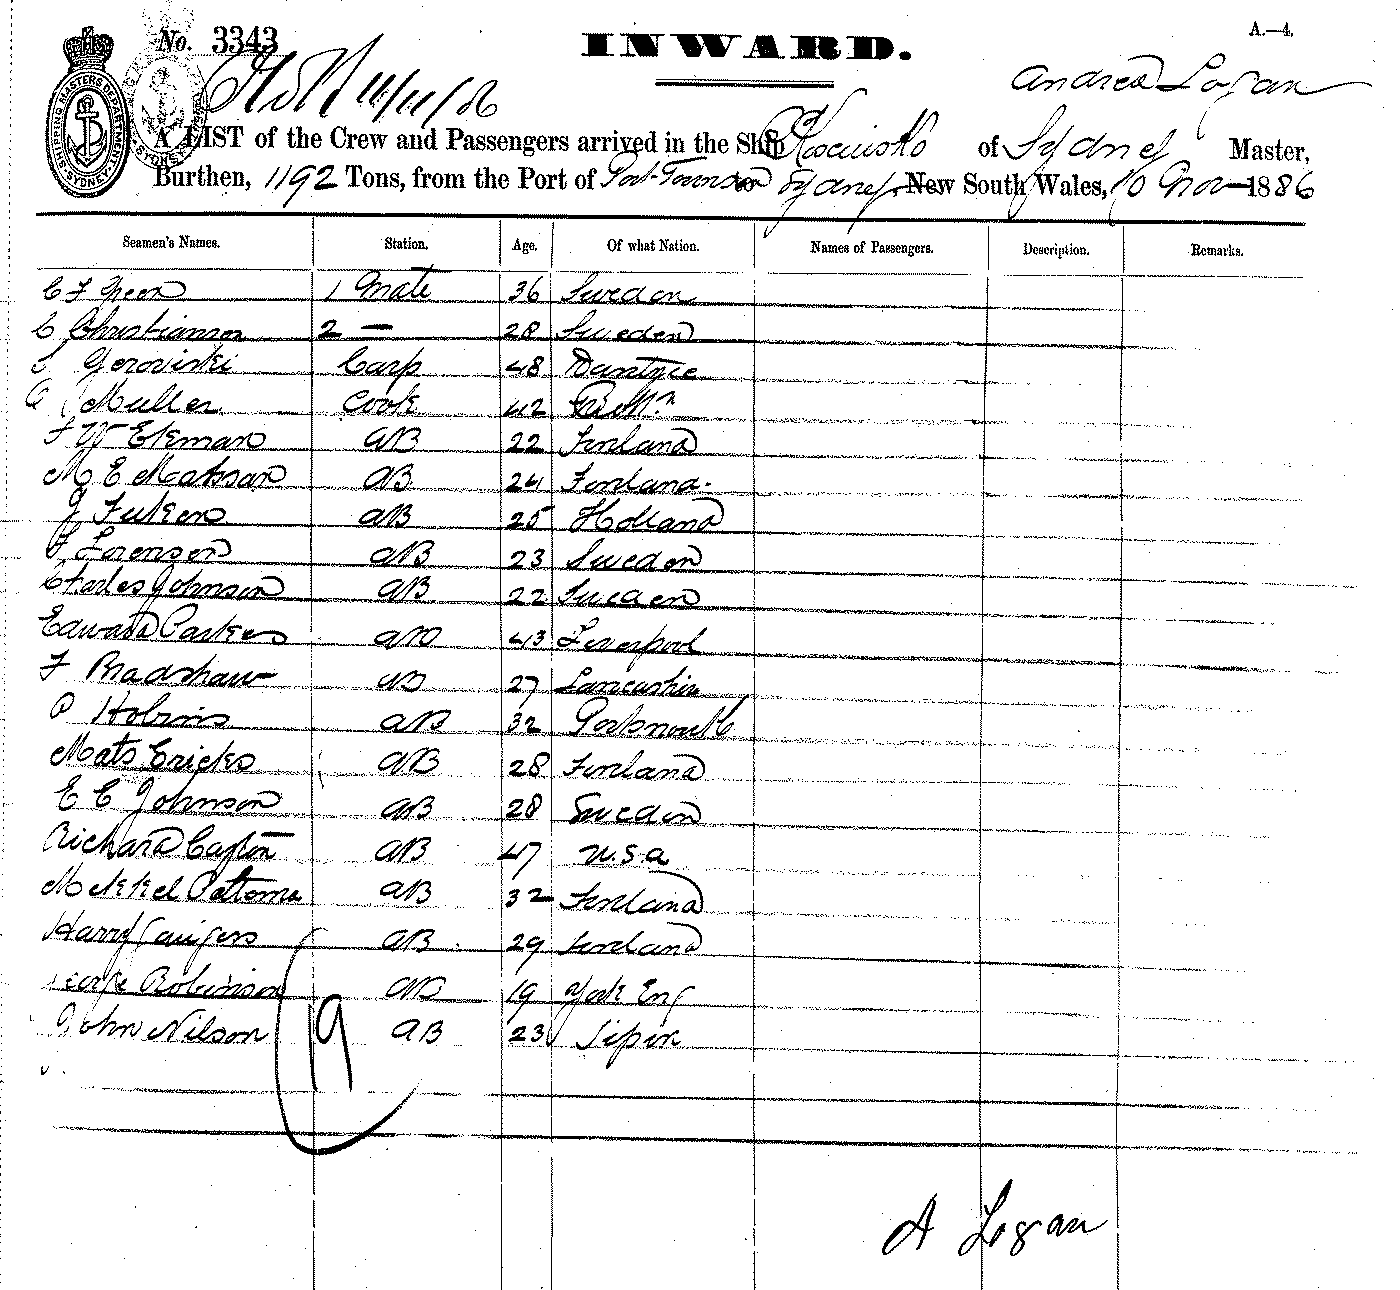 A.—4.
No. 3343
INWARD.
Andrew Logan
16/11/86
A LIST of the Crew and Passengers arrived in the Ship Kosciusko of Sydney Master,
Burthen, 1192 Tons, from the Port of Port Townsend to Sydney, New South Wales, 10 Nov 1886
SHIPPING MASTERS DEPARTMENT SYDNEY
Seamen's Names. Station. Age. Of what Nation. Names of Passengers. Description. Remarks.
C F Green 1 Mate 36 Sweden
C Christianson 2 — 28 Sweden
Carp 48
Muller Cook 42
F W Ekman AB 22 Finland
M E Matsson AB 24 Finland.
J AB 25 Holland
F Lorenson AB 23 Sweden
Charles Johnson AB 22 Sweden
Edward Parkes AB 43 Liverpool
F Bradshaw AB 27 Lancashire
P AB 32 Portsmouth
Mats Ericks AB 28 Finland
E C Johnson AB 28 Sweden
Richard AB 47 U.S.a
AB 32 Finland
Harry AB 29 Finland
George Robinson AB 19 York Eng
John Nilson AB 23
19
A Logan